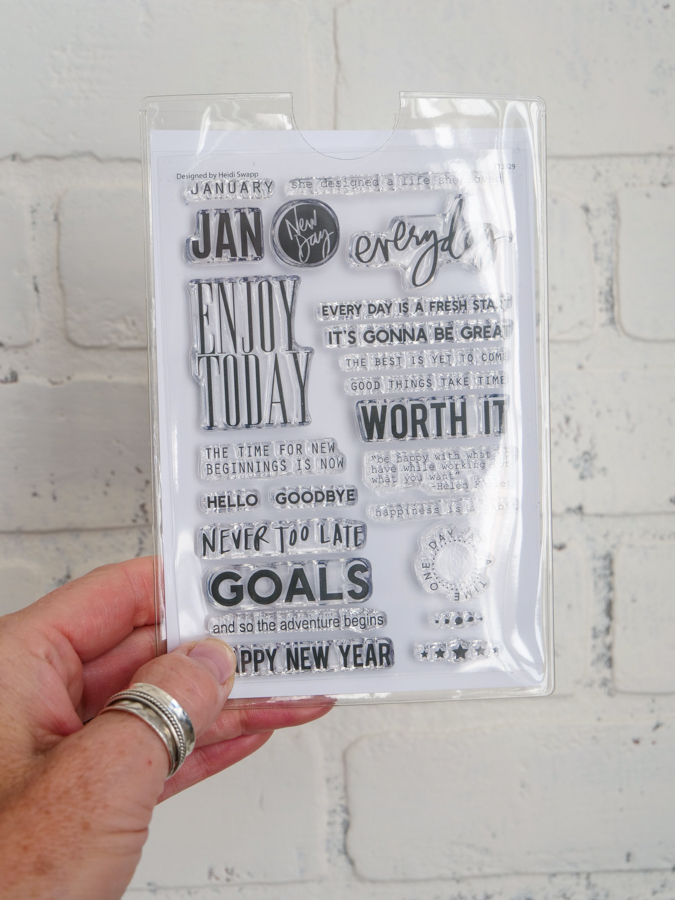 Designed by Heidi Swapp
JANUARY
she designed a life she
JAN
New Day
everyday
ENJOY
TODAY
EVERY DAY IS A FRESH
IT'S GONNA BE GREAT
THE BEST IS YET TO
GOOD THINGS TAKE TIME
WORTH IT
THE TIME FOR NEW
BEGINNINGS IS NOW
"be happy with what
have while working
what you want"
-Helen
HELLO
GOODBYE
happiness is
NEVER TOO LATE
ONE DAY AT A TIME
GOALS
and so the adventure begins
NEW YEAR